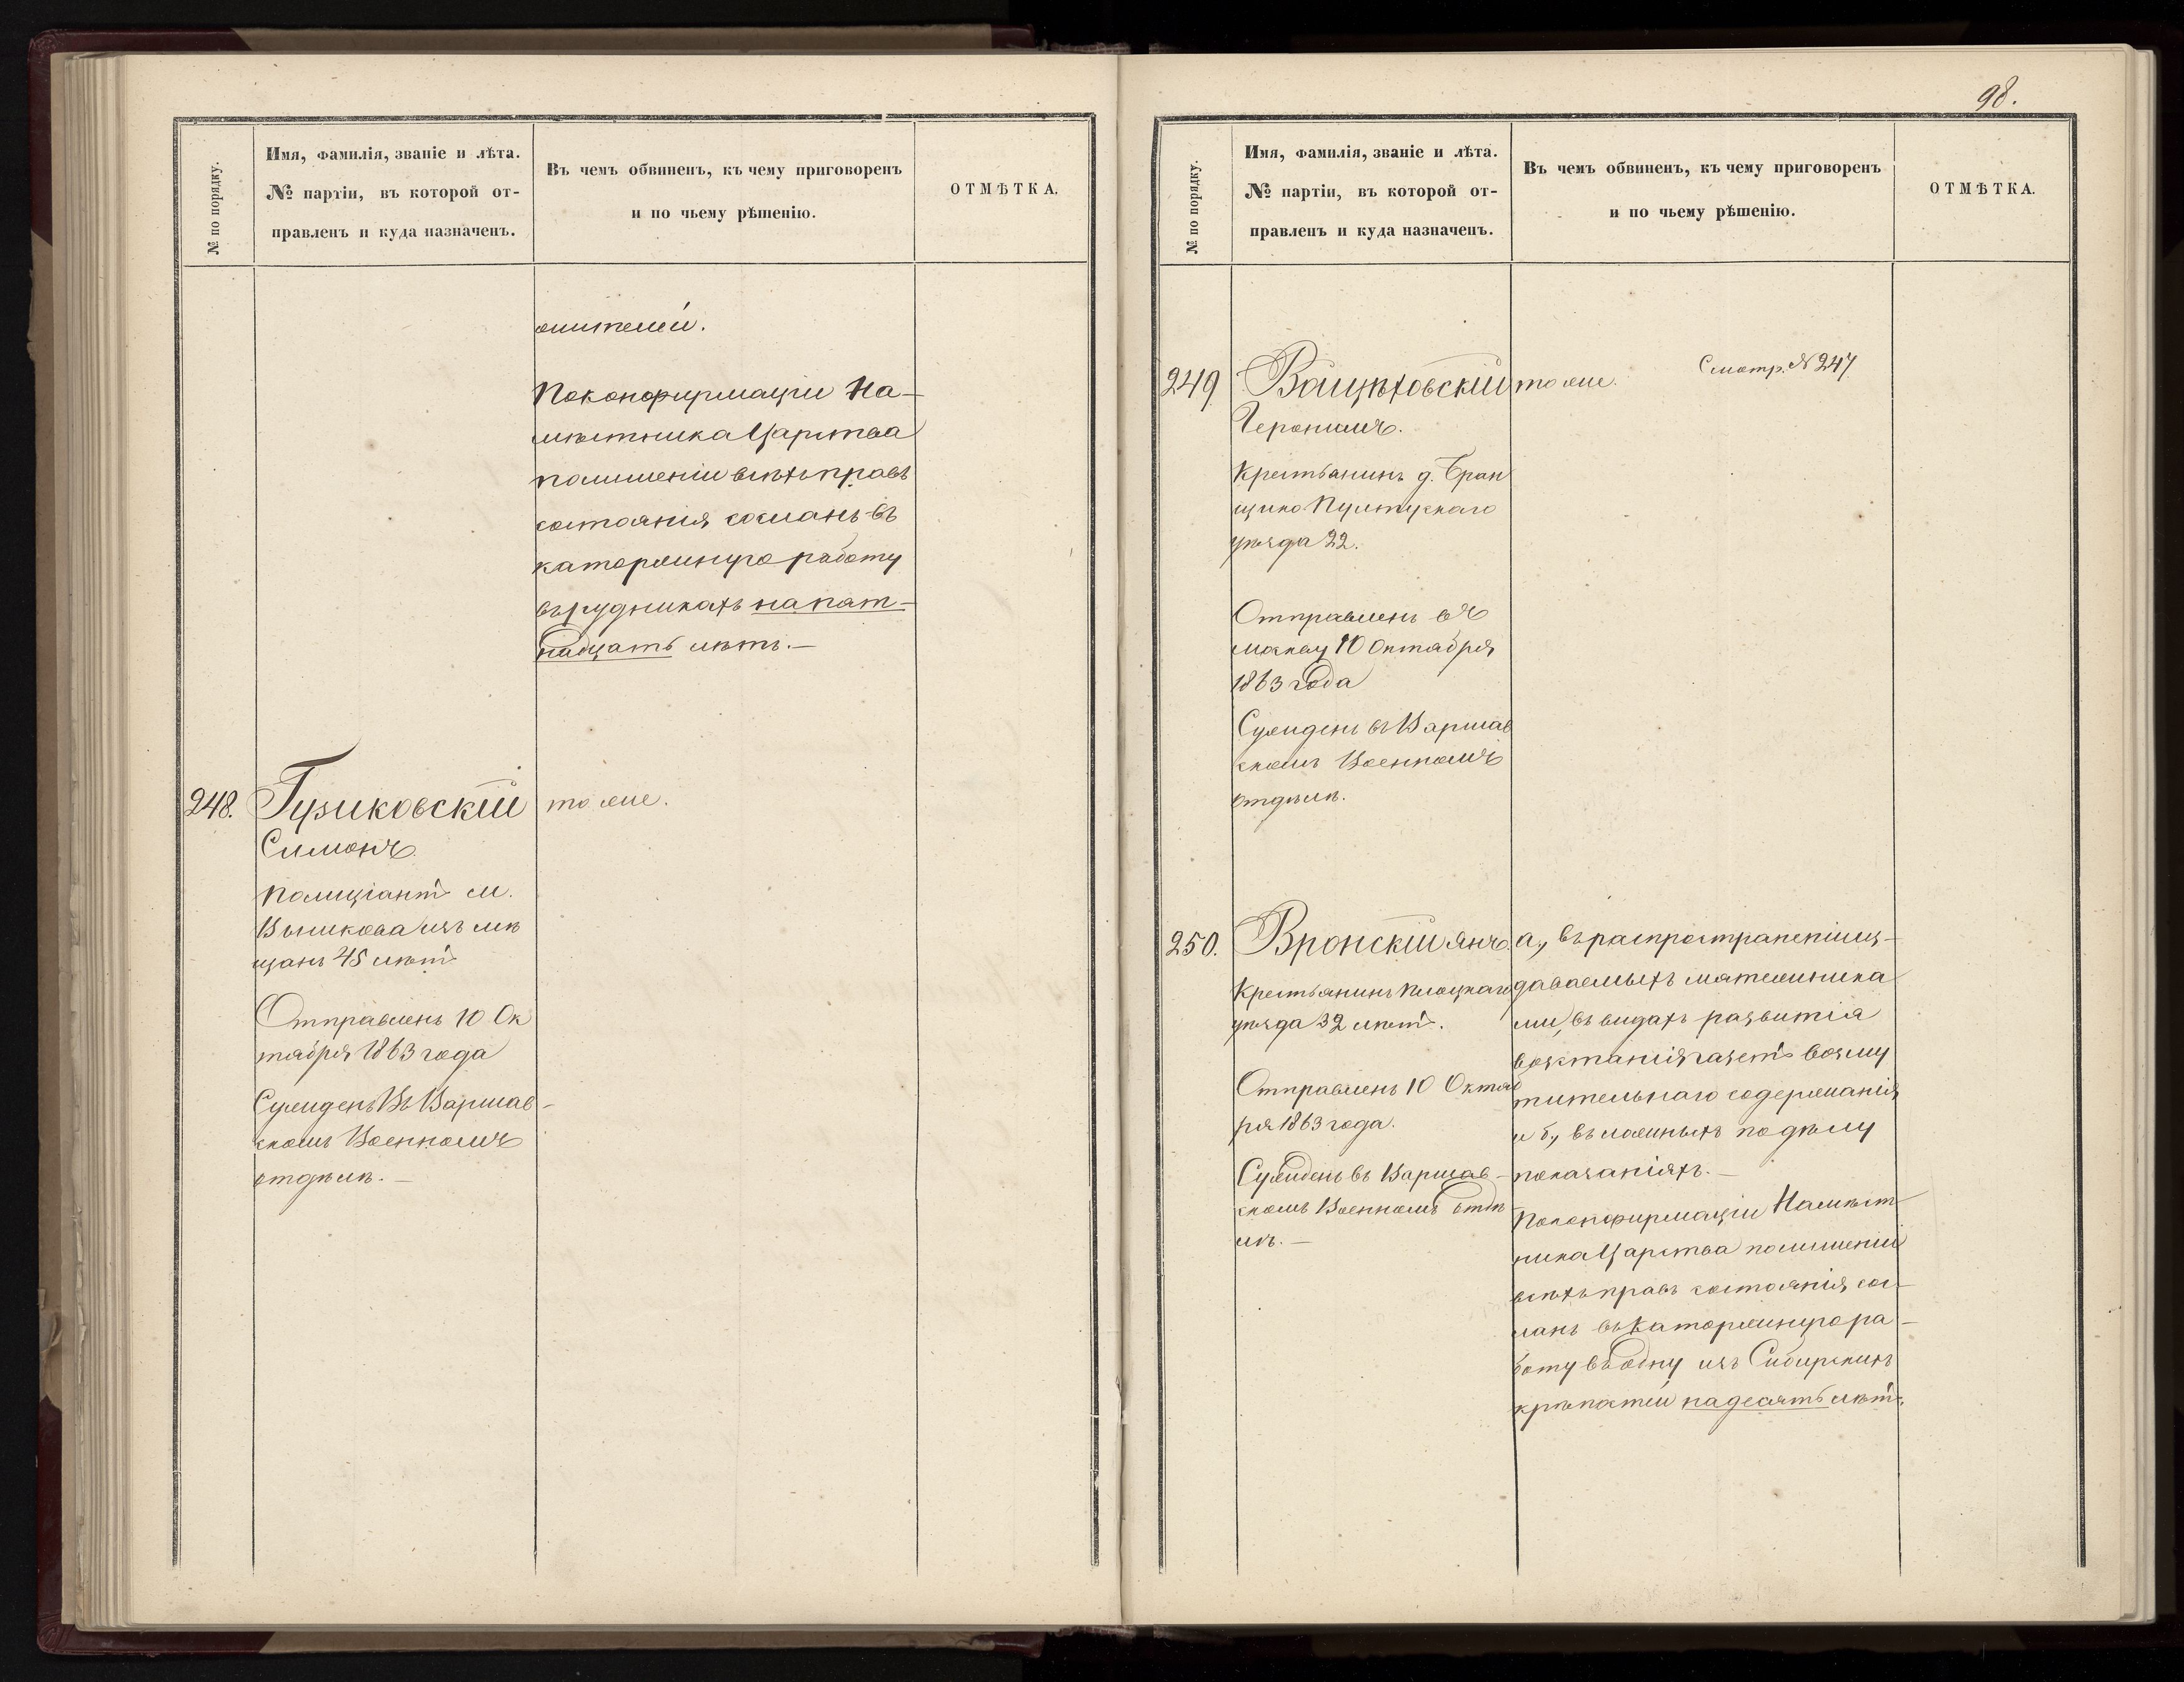 № по порядку.
Имя, фамилія, званіе и лѣта.
№ партіи, въ которой от-
правленъ и куда назначенъ.
Въ чемъ обвиненъ, къ чему приговоренъ
и по чьему рѣшенію.
ОТМѢТКА.
жителей.
По конфирмаціи На-
мѣстника Царства
по лишеніи всѣхъ правъ
состоянія сосланъ въ
каторжную работу
въ рудникахъ на пят-
надцать лѣтъ.—
248.
Гузиковскій
Симонъ.
Полиціантъ м.
Вышкова изъ мѣ
щанъ 45 лѣтъ
Отправленъ 10 Ок
тября 1863 года
Сужденъ въ Варшав-
скомъ Военномъ
отдѣлѣ.—
тоже.
98.
№ по порядку.
Имя, фамилія, званіе и лѣта.
№ партіи, въ которой от-
правленъ и куда назначенъ.
Въ чемъ обвиненъ, къ чему приговоренъ
и по чьему рѣшенію.
ОТМѢТКА.
249
Войцѣховскій
Геронимъ.
Крестьянинъ д. Бран
щико Пултускаго
уѣзда 22.
Отправленъ въ
Москву 10 Октября
1863 года
Сужденъ въ Варшав
скомъ Военномъ
отдѣлѣ.
тоже.
Смотр. № 247
250.
Вронскій Янъ.
Крестьянинъ Плоцкаго
уѣзда 32 лѣтъ.
Отправленъ 10 Октяб
ря 1863 года.
Сужденъ въ Варшав-
скомъ Военномъ Отдѣ
лѣ.—
а., въ распространеніи из-
даваемыхъ мятежника
ми, въ видахъ развитія
возстанія газетъ возму
тительнаго содержанія
и б., въ ложныхъ по дѣлу
показаніяхъ.—
По конфирмаціи Намѣст
ника Царства по лишеніи
всѣхъ правъ состоянія, сос-
ланъ въ каторжную ра-
боту въ одну изъ Сибирскихъ
крѣпостей на десять лѣтъ.